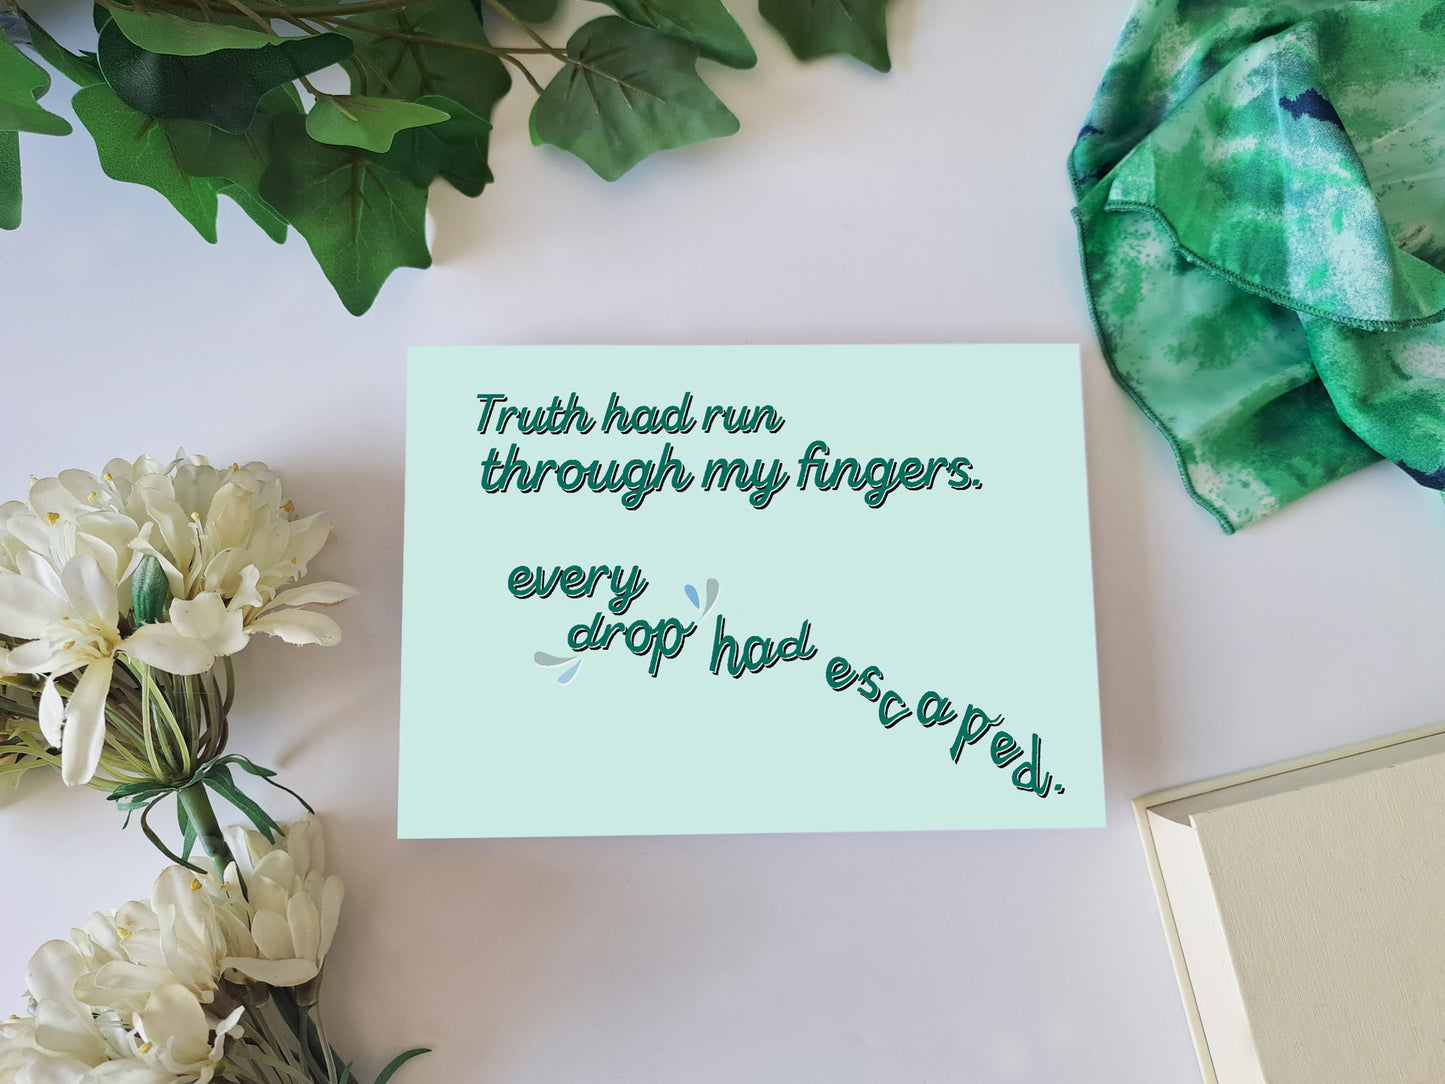 Truth had run
through my fingers.
every
drop had escaped.